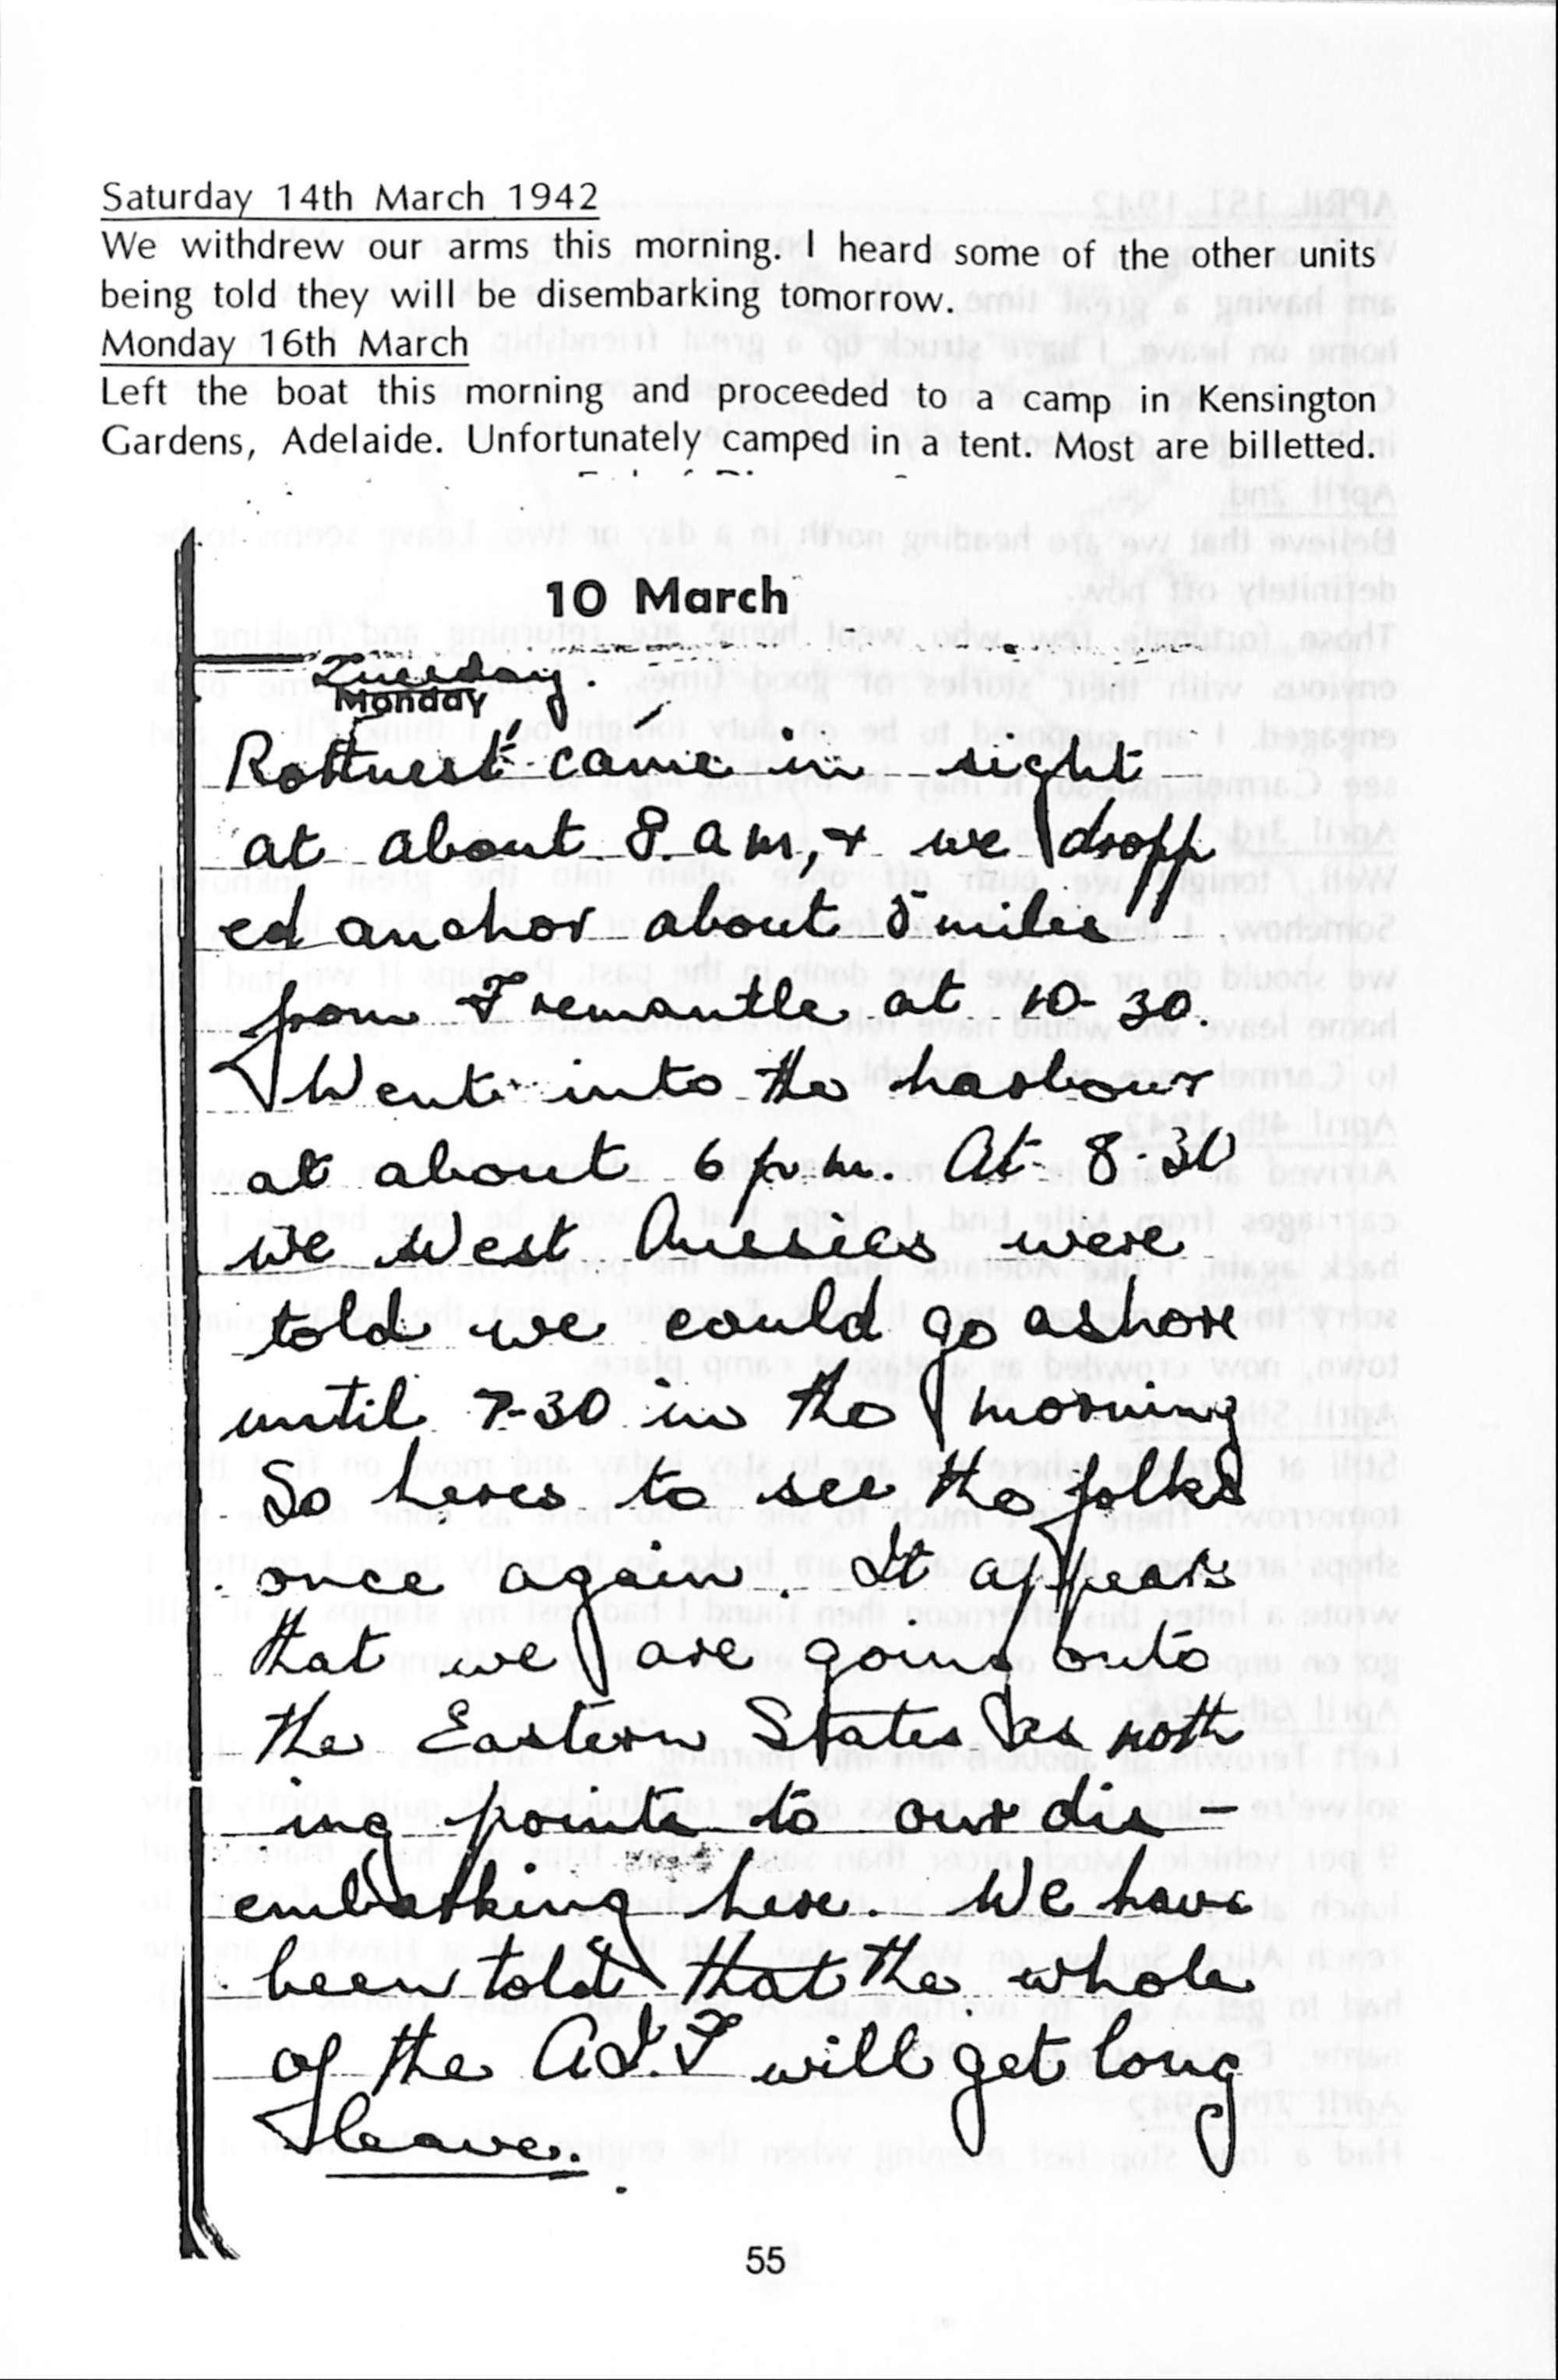 Saturday 14th March 1942
We withdrew our arms this morning. I heard some of the other units
being told they will be disembarking tomorrow.
Monday 16th March
Left the boat this morning and proceeded to a camp in Kensington
Gardens, Adelaide. Unfortunately camped in a tent. Most are billetted.
10 March
Tuesday.
Monday
Rottnest came in sight
at about 8. a m, + we dropp
ed anchor about 5 miles
from Fremantle at 10-30.
Went into the harbour
at about 6 p.m. At 8.30
we West Aussies were
told we could go ashore
until 7-30 in the morning
So heres to see the folks
once again. It appears
that we are going onto
the Eastern States as noth
ing points to our dis -
embarking here. We have
been told that the whole
of the A.I.F will get long
leave.
55